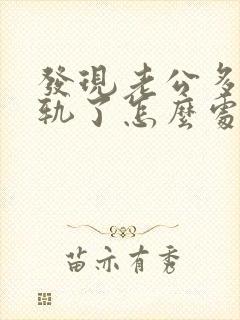 發現老公多
軌了怎麼處
苗亦有秀